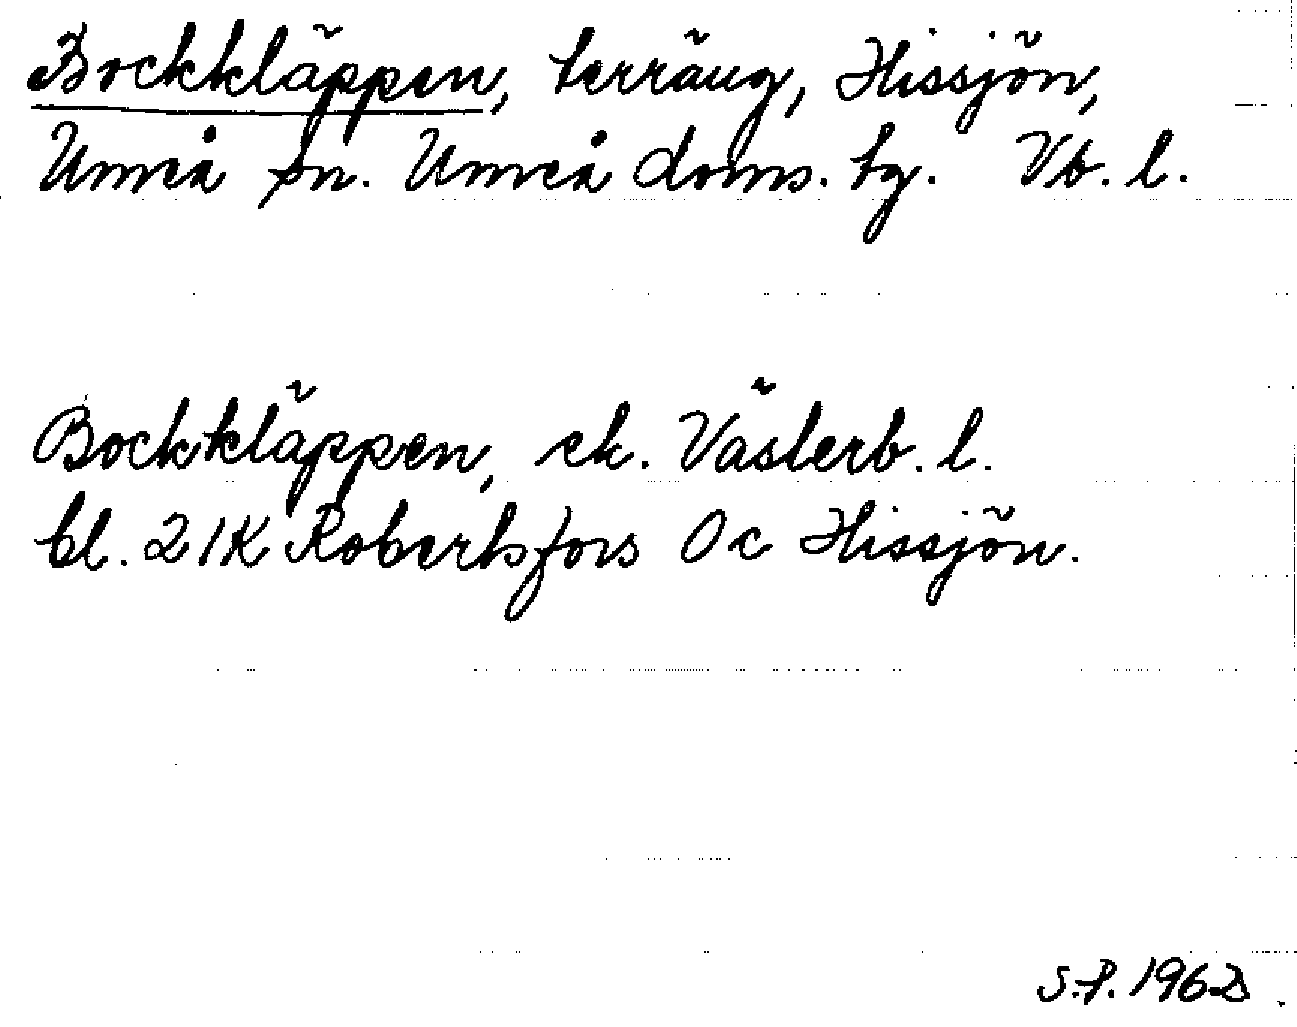 Bockkläppen, terräng, Hissjön,
Umeå sn. Umeå doms. tg. Vb. l.
Bockkläppen, ek. Västerb. l.
bl. 21K Robertsfors 0c Hissjön.
S.P. 1962